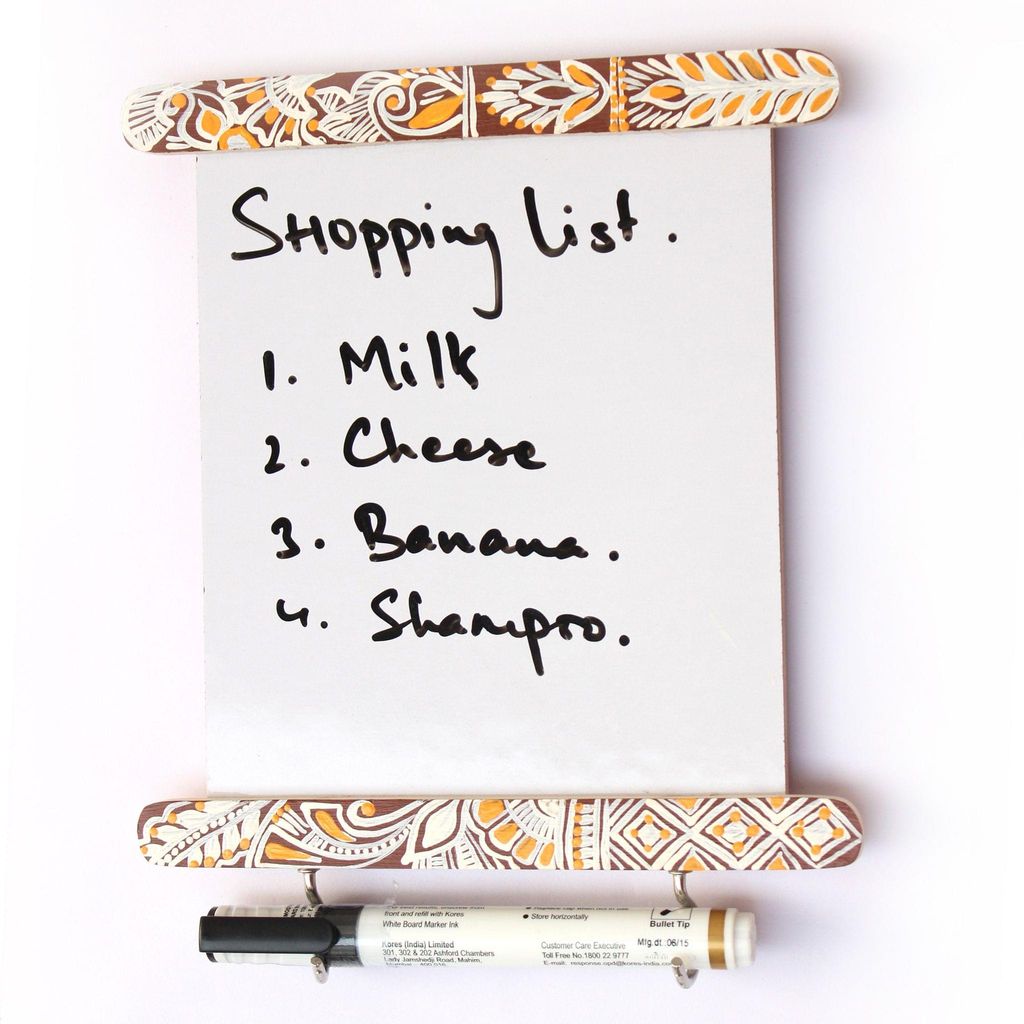 SHopping list.
1. Milk
2. Cheese
3. Banana.
4. Shampro.
front and refill with Kores
White Board Marker Ink
Kores (India) Limited
301, 302 & 202 Ashford Chambers
Lady Jamshedji Road, Mahim,
• Store horizontally
Customer Care Executive
Toll Free No.1800 22 9777
E-mail. response.opd@kores-india.co
Bullet Tip
Mfg.dt.:06/15